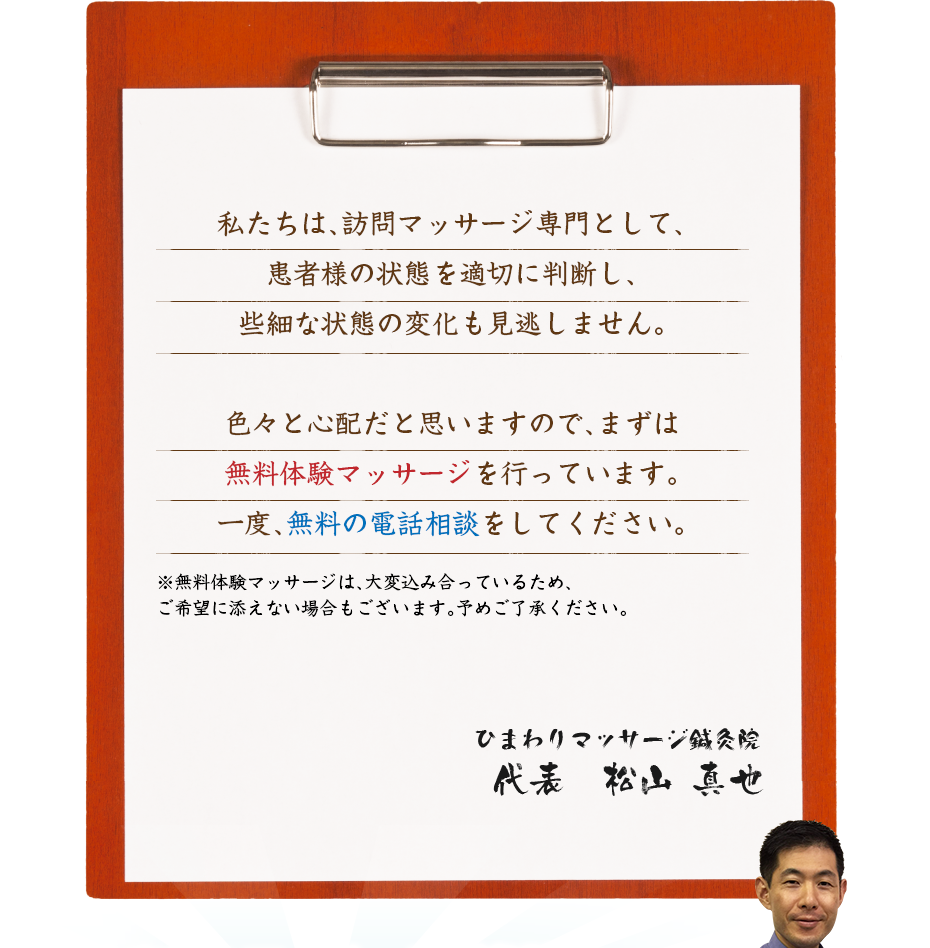 私たちは、訪問マッサージ専門として、
患者様の状態を適切に判断し、
些細な状態の変化も見逃しません。
色々と心配だと思いますので、まずは
無料体験マッサージを行っています。
一度、無料の電話相談をしてください。
※無料体験マッサージは、大変込み合っているため、
ご希望に添えない場合もございます。予めご了承ください。
ひまわりマッサージ鍼灸院
代表　松山 真也